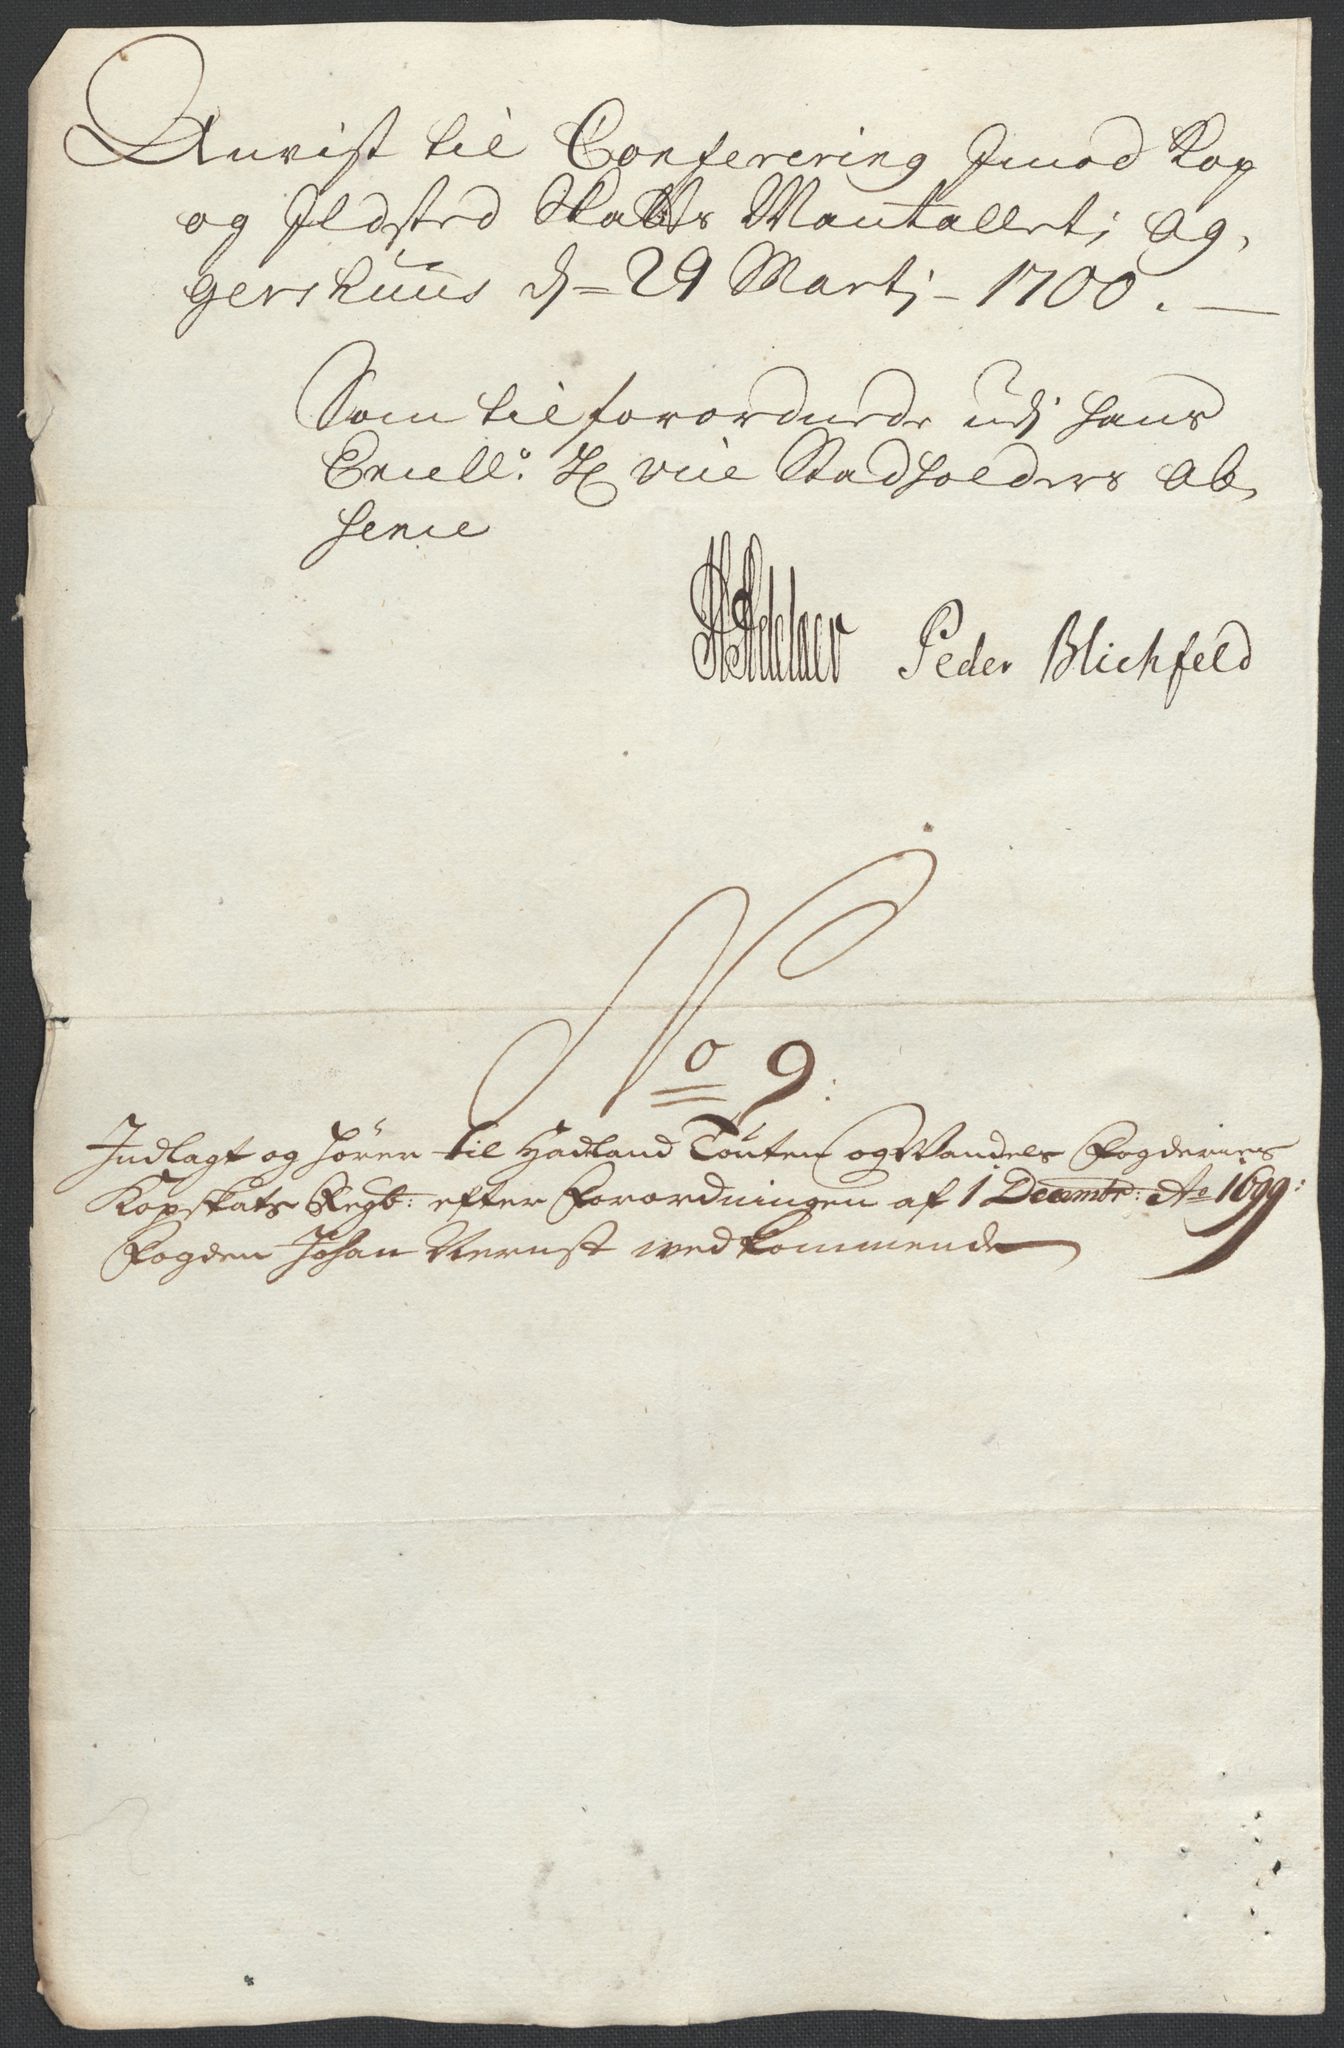 Anvist til Conferering Imod Kop
og Ildsted Skatts Mantallet; Ag,
gershuus d = 29 Martj - 1700.
Som tilforordnede udj hans
Excell: H vice Stadholders ab,
sence
H Adelaer Peder Blichfeld
No 9:
Indlagt og hører til Hadland Touten og Wandels Fogderies
Kopskats Regb: efter Forordningen af 1 Decembr: Ao 1699:
Fogden Johan Nernst wedkommende